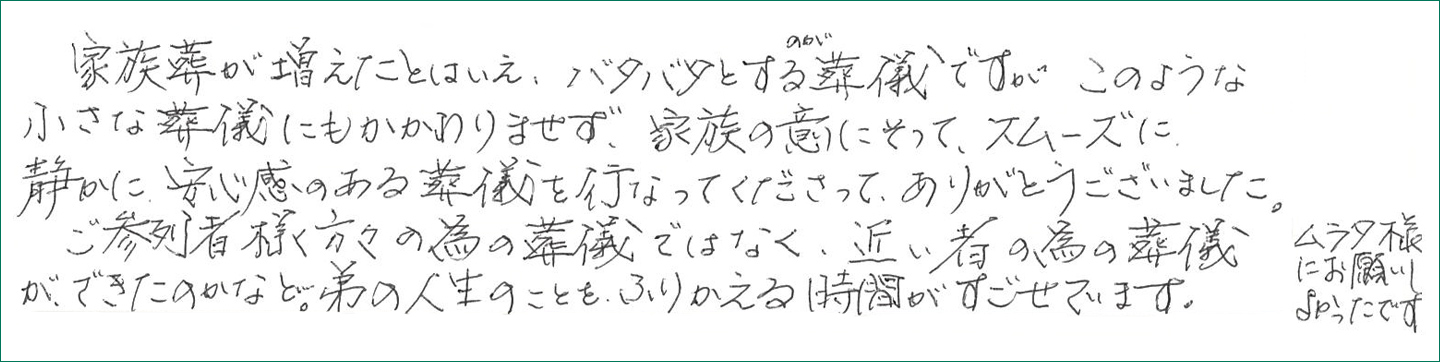 家族葬が増えたとはいえ、バタバタとするのが葬儀ですが このような
小さな葬儀にもかかわりませず、家族の意にそって、スムーズに
静かに、安心感のある葬儀を行なってくださって、ありがとうございました。
ご参列者様方々の為の葬儀ではなく、近い者の為の葬儀
が、できたのかなど。弟の人生のことを、ふりかえる時間がすごせています。
ムラタ様
にお願いし
よかったです